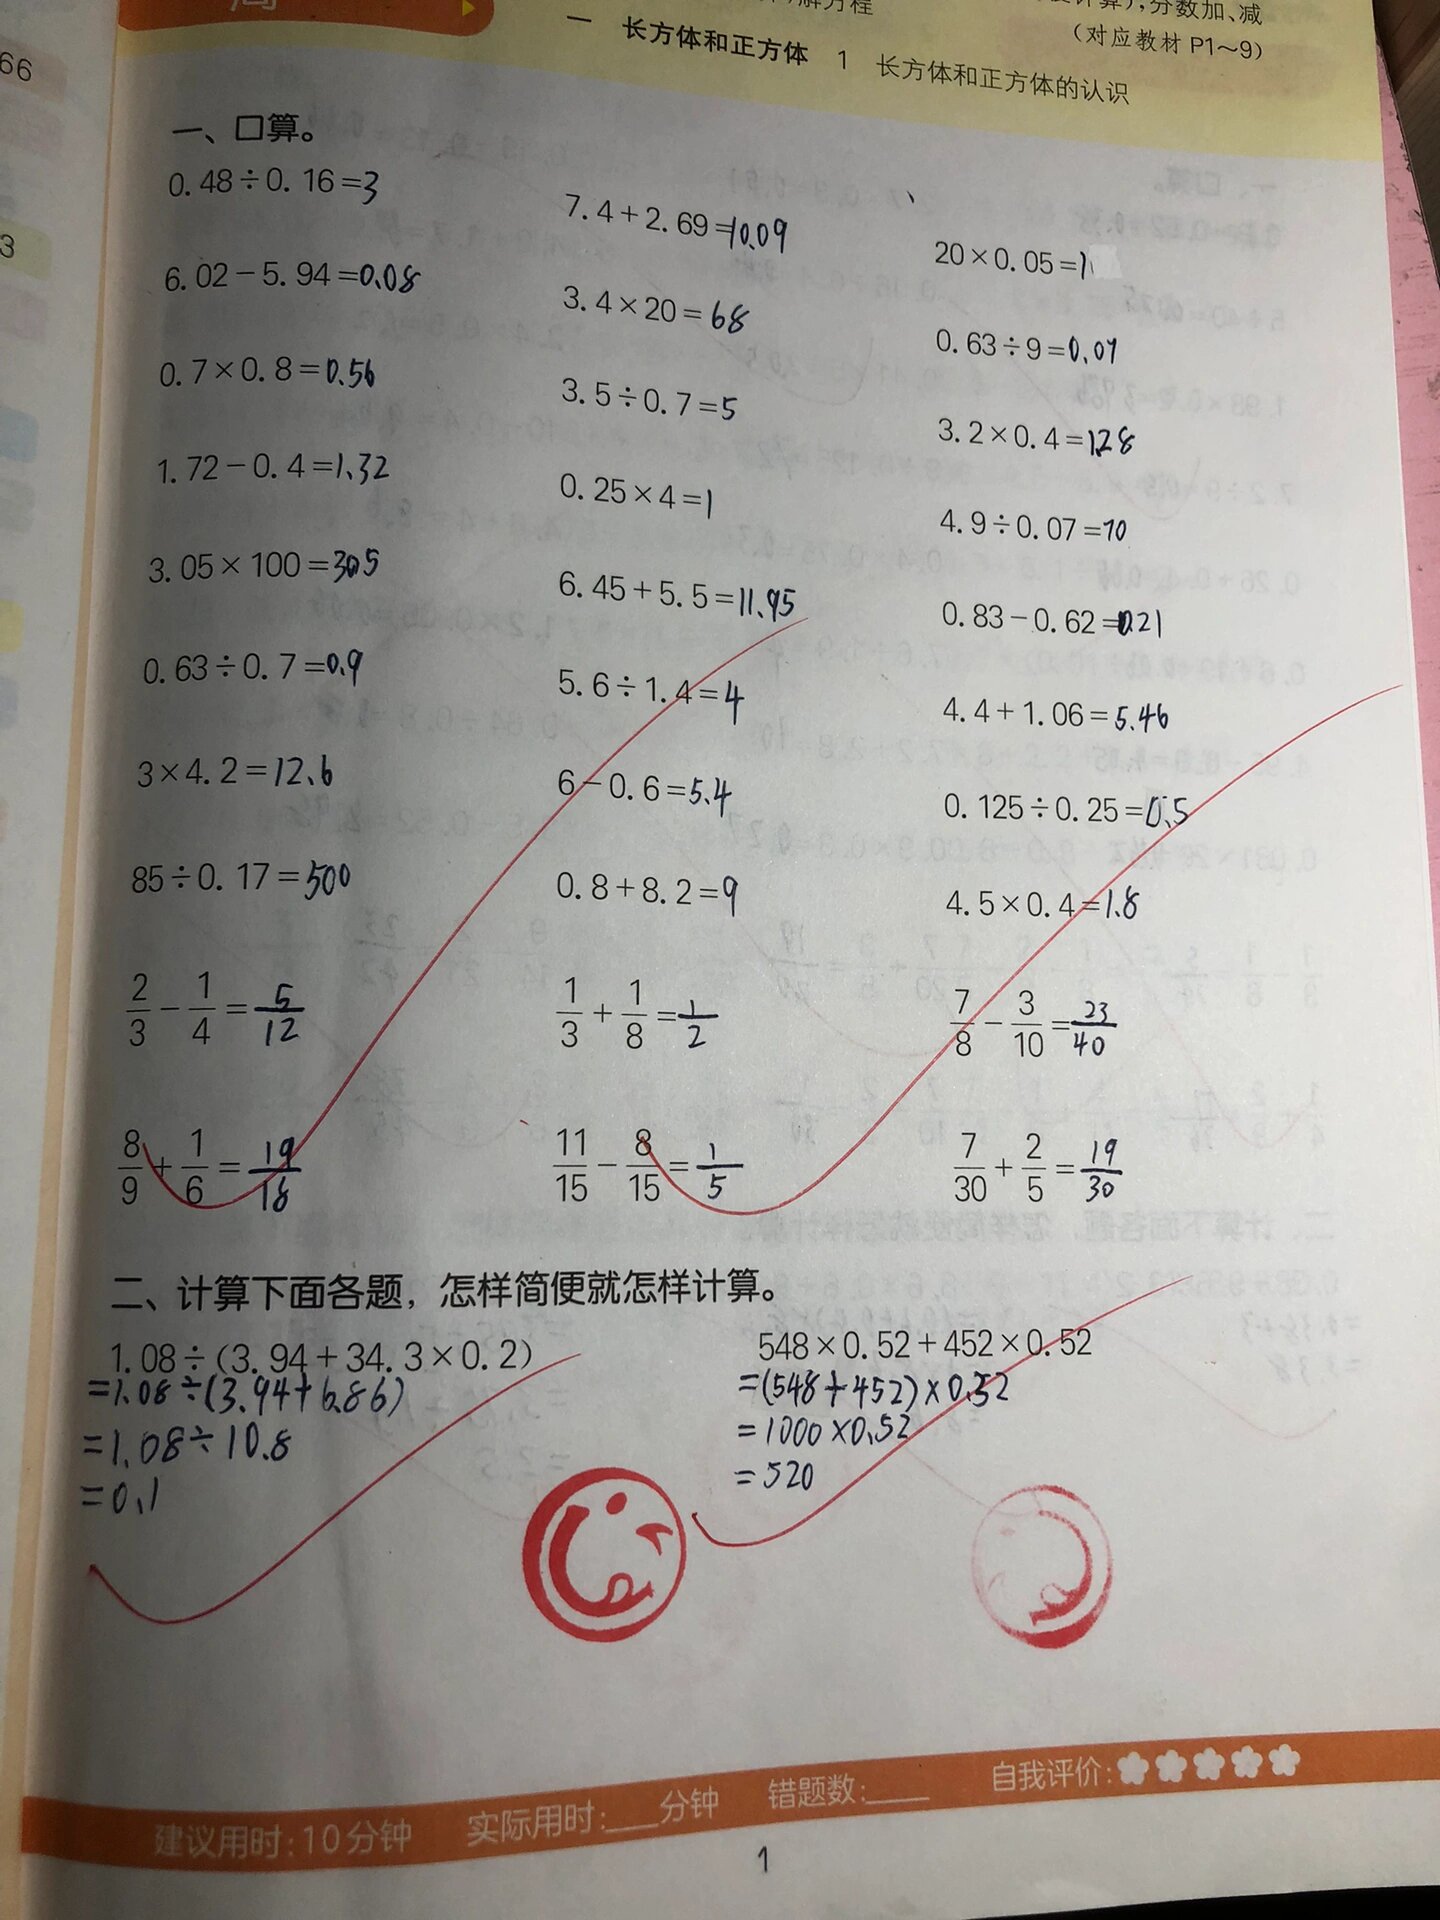 66
3
周
解方程
计算),分数加、减
(对应教材 P1～9)
一 长方体和正方体 1 长方体和正方体的认识
一、口算。
0.48÷0.16=3 7.4+2.69=10.09 20×0.05=1
6.02-5.94=0.08 3.4×20=68 0.63÷9=0.07
0.7×0.8=0.56 3.5÷0.7=5 3.2×0.4=1.28
1.72-0.4=1.32 0.25×4=1 4.9÷0.07=70
3.05×100=305 6.45+5.5=11.95 0.83-0.62=0.21
0.63÷0.7=0.9 5.6÷1.4=4 4.4+1.06=5.46
3×4.2=12.6 6-0.6=5.4 0.125÷0.25=0.5
85÷0.17=500 0.8+8.2=9 4.5×0.4=1.8
2/3-1/4=5/12 1/3+1/8=1/2 7/8-3/10=23/40
8/9+1/6=19/18 11/15-8/15=1/5 7/30+2/5=19/30
二、计算下面各题，怎样简便就怎样计算。
1.08÷(3.94+34.3×0.2) 548×0.52+452×0.52
=1.08÷(3.94+6.86) =(548+452)×0.52
=1.08÷10.8 =1000×0.52
=0.1 =520
建议用时:10分钟 实际用时:___分钟 错题数:____ 自我评价:
1